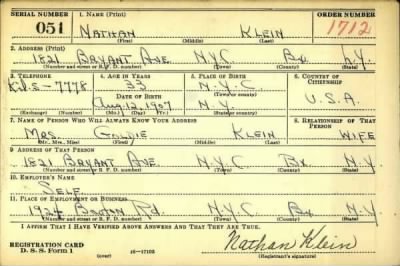 SERIAL NUMBER 1. NAME (Print) ORDER NUMBER
051 NATHAN KLEIN 1712
(First) (Middle) (Last)
2. ADDRESS (Print)
1821 BRYANT AVE N.Y.C. BX N.Y.
(Number and street or R. F. D. number) (Town) (County) (State)
3. TELEPHONE 4. AGE IN YEARS 5. PLACE OF BIRTH 6. COUNTRY OF CITIZENSHIP
33 N.Y.C.
DATE OF BIRTH (Town or county)
7778 AUG. 12, 1907 N.Y. U.S.A.
(Exchange) (Number) (Mo.) (Day) (Yr.) (State or country)
7. NAME OF PERSON WHO WILL ALWAYS KNOW YOUR ADDRESS 8. RELATIONSHIP OF THAT PERSON
MRS. GOLDIE KLEIN WIFE
(Mr., Mrs., Miss) (First) (Middle) (Last)
9. ADDRESS OF THAT PERSON
1821 BRYANT AVE. N.Y.C. BX N.Y.
(Number and street or R. F. D. number) (Town) (County) (State)
10. EMPLOYER'S NAME
SELF
11. PLACE OF EMPLOYMENT OR BUSINESS
N.Y.C. BX N.Y.
(Number and street or R. F. D. number) (Town) (County) (State)
I AFFIRM THAT I HAVE VERIFIED ABOVE ANSWERS AND THAT THEY ARE TRUE.
Nathan Klein
REGISTRATION CARD
D. S. S. Form 1 (over) 16-17105 (Registrant's signature)